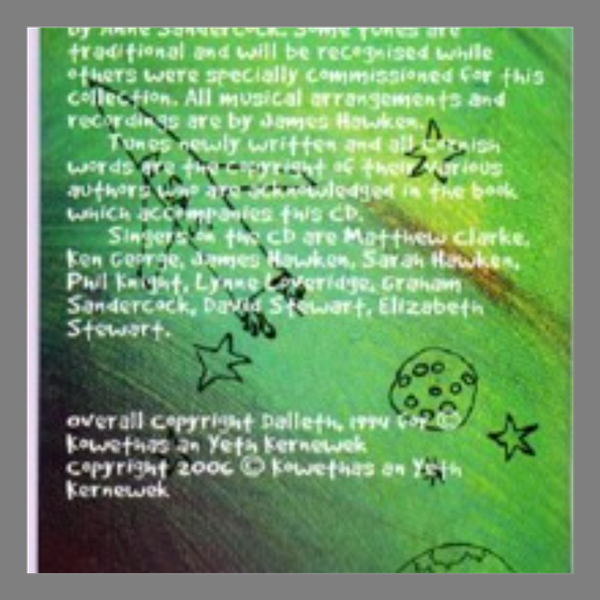 by Anne Sandercock. Some tunes are
traditional and will be recognised while
others were specially commissioned for this
collection. All musical arrangements and
recordings are by James Hawken.
Tunes newly written and all Cornish
words are the copyright of their various
authors who are acknowledged in the book
which accompanies this CD.
Singers on the CD are Matthew Clarke,
Ken George, James Hawken, Sarah Hawken,
Phil Knight, Lynne Loveridge, Graham
Sandercock, David Stewart, Elizabeth
Stewart.
Overall Copyright Dalleth, 1994 for ©
Kowethas an Yeth Kernewek
Copyright 2006 © Kowethas an Yeth
Kernewek